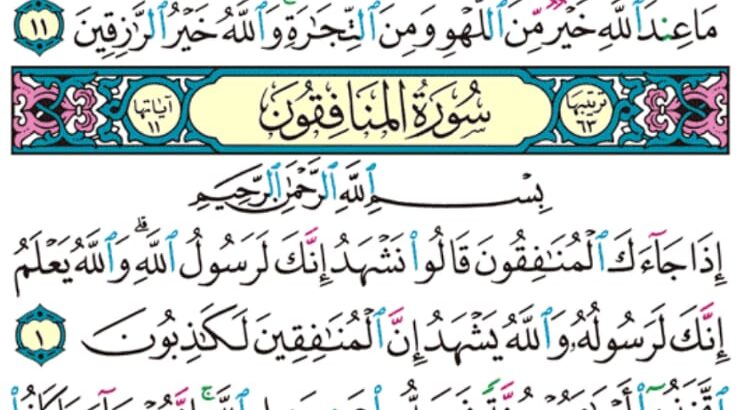 مَا عِندَ ٱللَّهِ خَيْرٌ مِّنَ ٱللَّهْوِ وَمِنَ ٱلتِّجَٰرَةِ وَٱللَّهُ خَيْرُ ٱلرَّٰزِقِينَ ١١
ترتيبها ٦٣ سُورَةُ المنَافِقُونَ آياتها ١١
بِسْمِ ٱللَّهِ ٱلرَّحْمَٰنِ ٱلرَّحِيمِ
إِذَا جَآءَكَ ٱلْمُنَٰفِقُونَ قَالُوا۟ نَشْهَدُ إِنَّكَ لَرَسُولُ ٱللَّهِ ۗ وَٱللَّهُ يَعْلَمُ
إِنَّكَ لَرَسُولُهُۥ وَٱللَّهُ يَشْهَدُ إِنَّ ٱلْمُنَٰفِقِينَ لَكَٰذِبُونَ ١